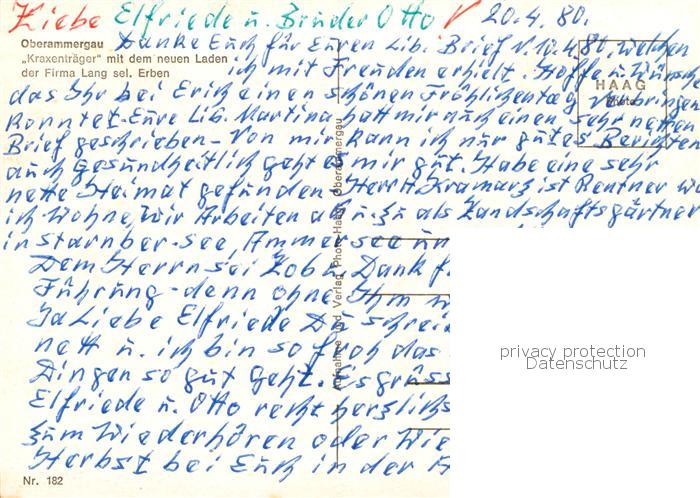 Liebe Elfriede u. Bruder Otto V 20.4.80.
Oberammergau
„Kraxenträger" mit dem neuen Laden
der Firma Lang sel. Erben
Danke Euch für Euren Lib. Brief v. 10.4.80, welchen
ich mit Freuden erhielt. Hoffe u. Wünsche
HAAG
Photo
das Ihr bei Erich einen schönen Fröhlichentag verbringen
konntet. Eure Lib. Martina hatt mir auch einen sehr netten
Brief geschrieben - Von mir kann ich nur gutes Berichten
auch Gesundheitlich geht es mir gut. Habe eine sehr
nette Heimat gefunden. Herr H. Kramarz ist Rentner wo
ich Wohne, Wir Arbeiten ab u. zu als Landschaftsgärtner
in starnber-see, Ammersee un
Dem Herrn sei Lob u. Dank f
Führung - denn ohne Ihm
Ja Liebe Elfriede Du schrei
nett u. ich bin so froh das
Dingen so gut Geht. Es grüss
Elfriede u. Otto recht herzlichs
zum Wiederhören oder Wie
Herbst bei Euch in der
Nr. 182
Aufnahme und Verlag Photo-Haag, Oberammergau
privacy protection
Datenschutz